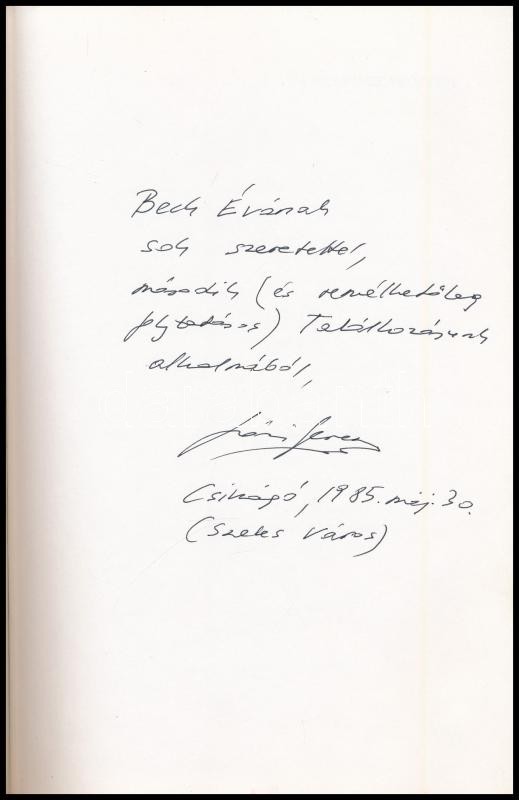 Beck Évának
sok szeretettel,
második (és remélhetőleg
folytatásos) Találkozásunk
alkalmából,
Csikágó, 1985. máj. 30.
(Szeles Város)